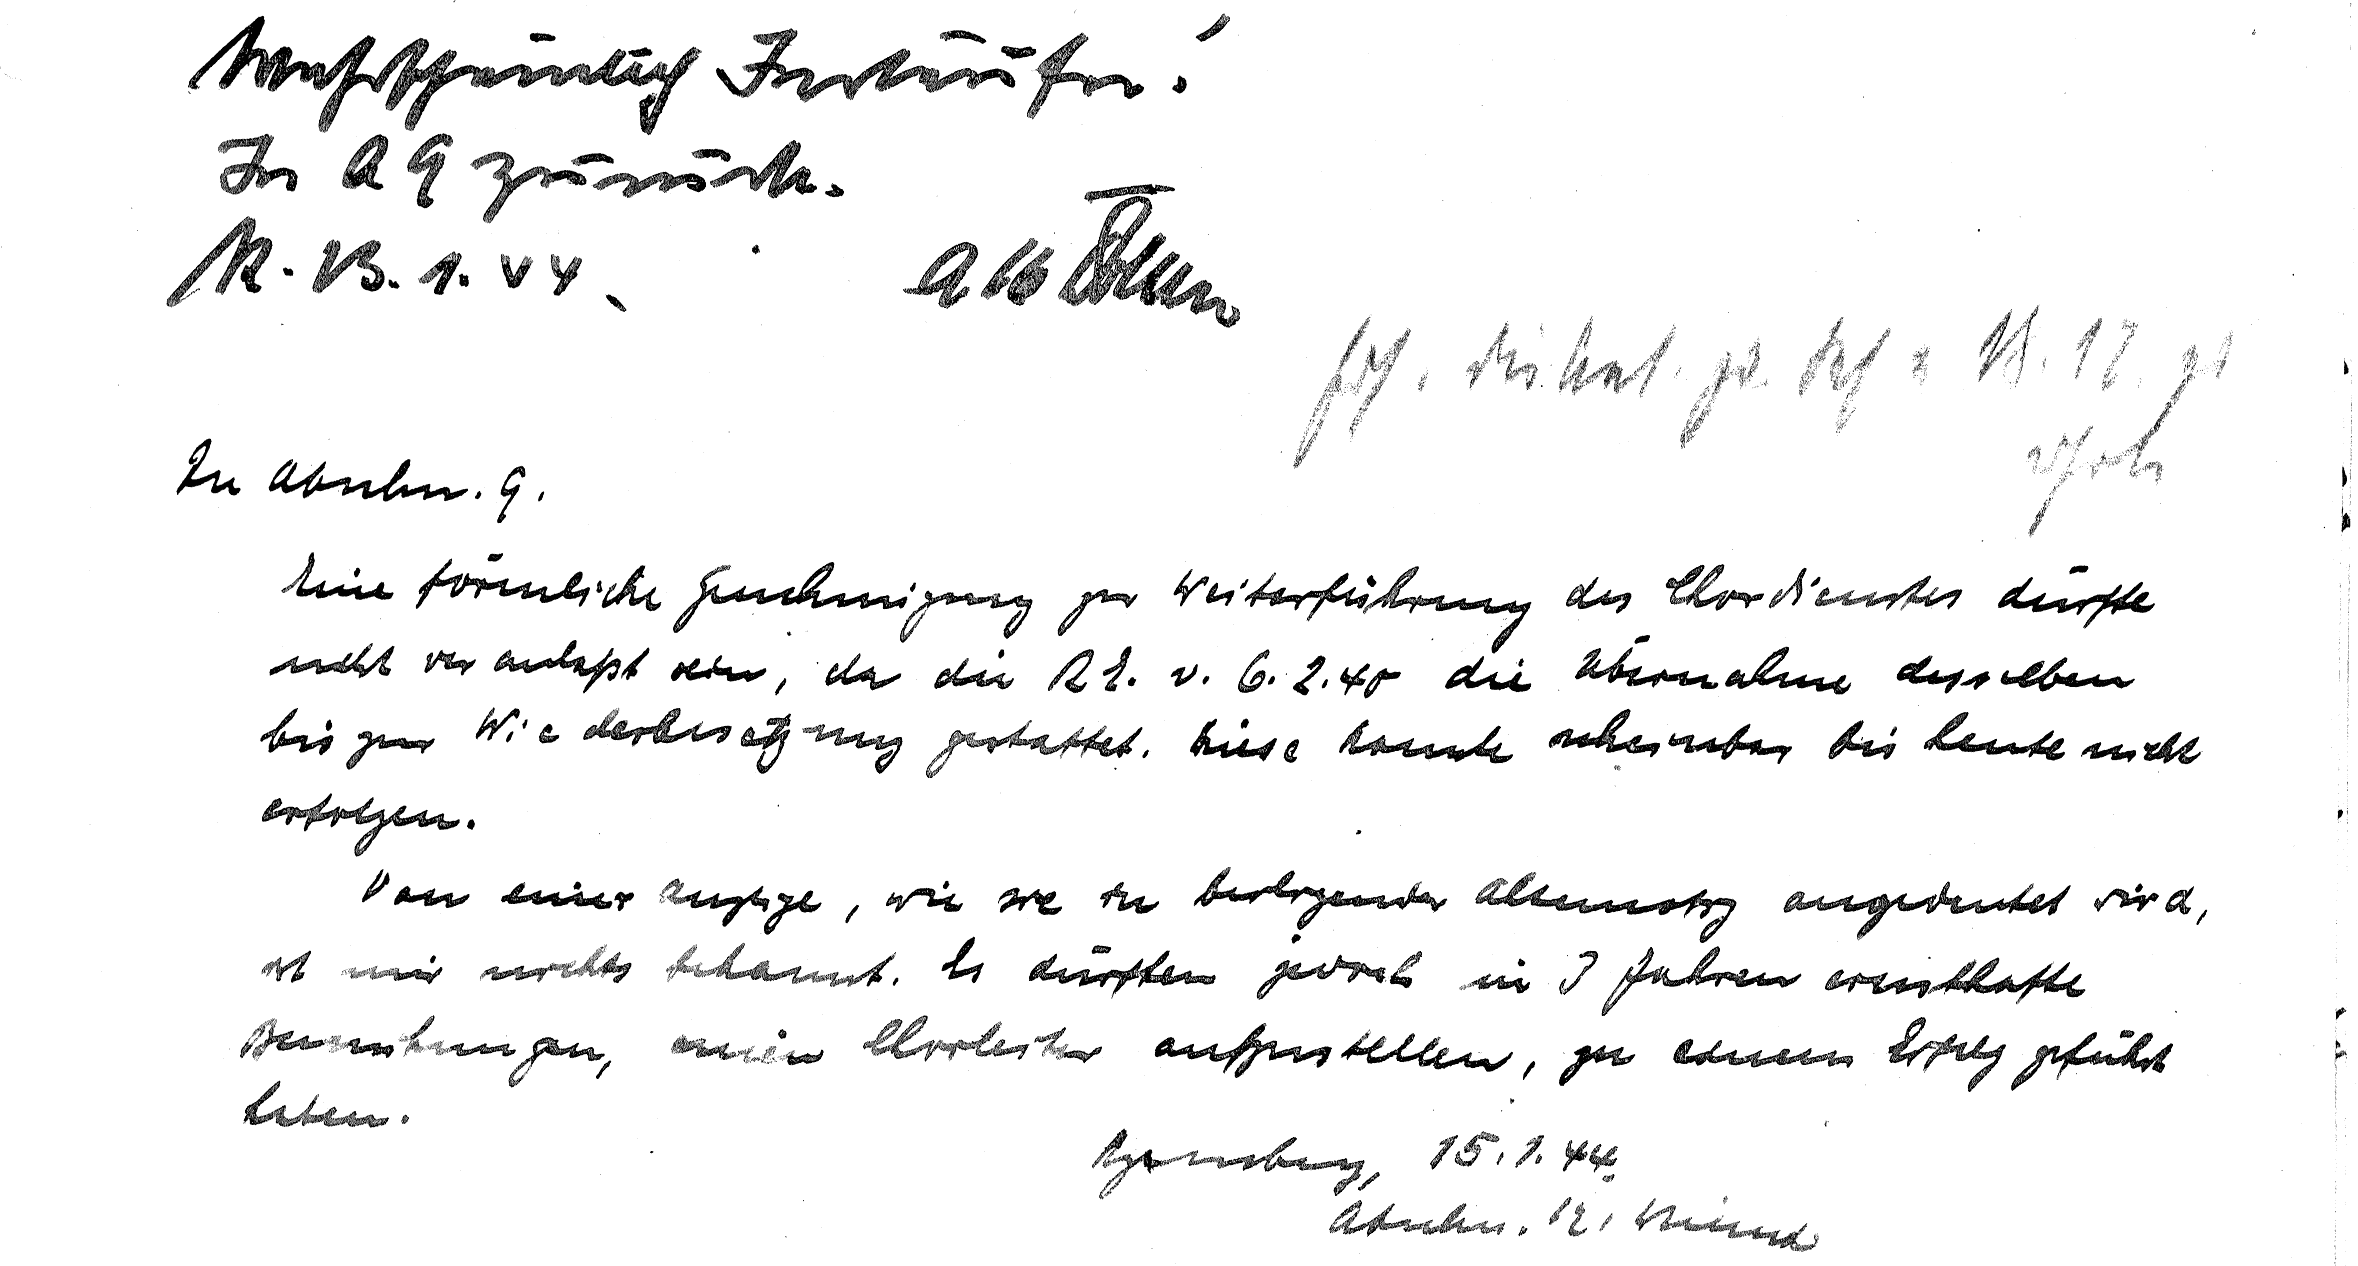 Wahrscheinlich Irrläufer!
In A G zurück.
R. 13. 1. 44.
In Abschn. G.
Eine förmliche Genehmigung zur Weiterführung des Chordienstes dürfte
nicht veranlaßt sein, da die RE. v. 6.2.40 die Übernahme desselben
bis zur Wiederbesetzung gestattet. Diese konnte scheinbar bis heute nicht
erfolgen.
Von einer Anzeige, wie sie in beiliegender angedeutet wird,
ist mir nichts bekannt. Es dürften jedoch in 3 Jahren ernsthafte
Bemühungen, einen Chorleiter aufzustellen, zu einem Erfolg geführt
haben.
Regensburg, 15.1.44.
Abschn. 12.